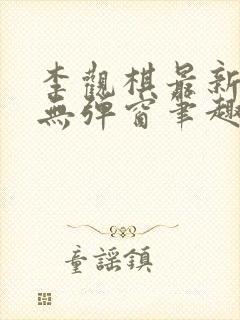 李觀棋最新
無彈窗筆趣
童謠鎮